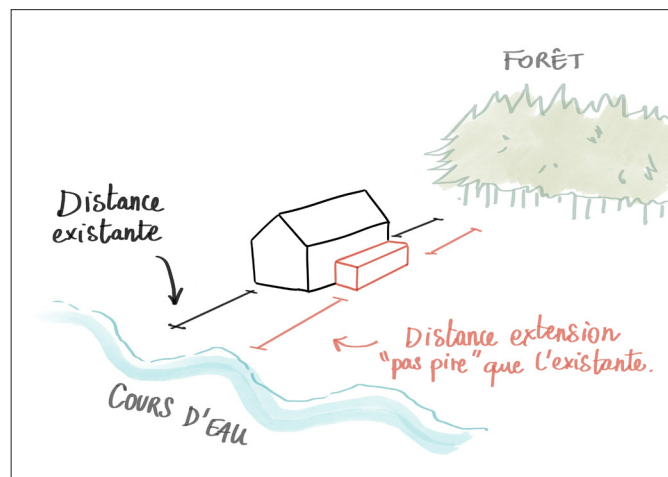 FORÊT
Distance
existante
Distance extension
"pas pire" que l'existante.
COURS D'EAU